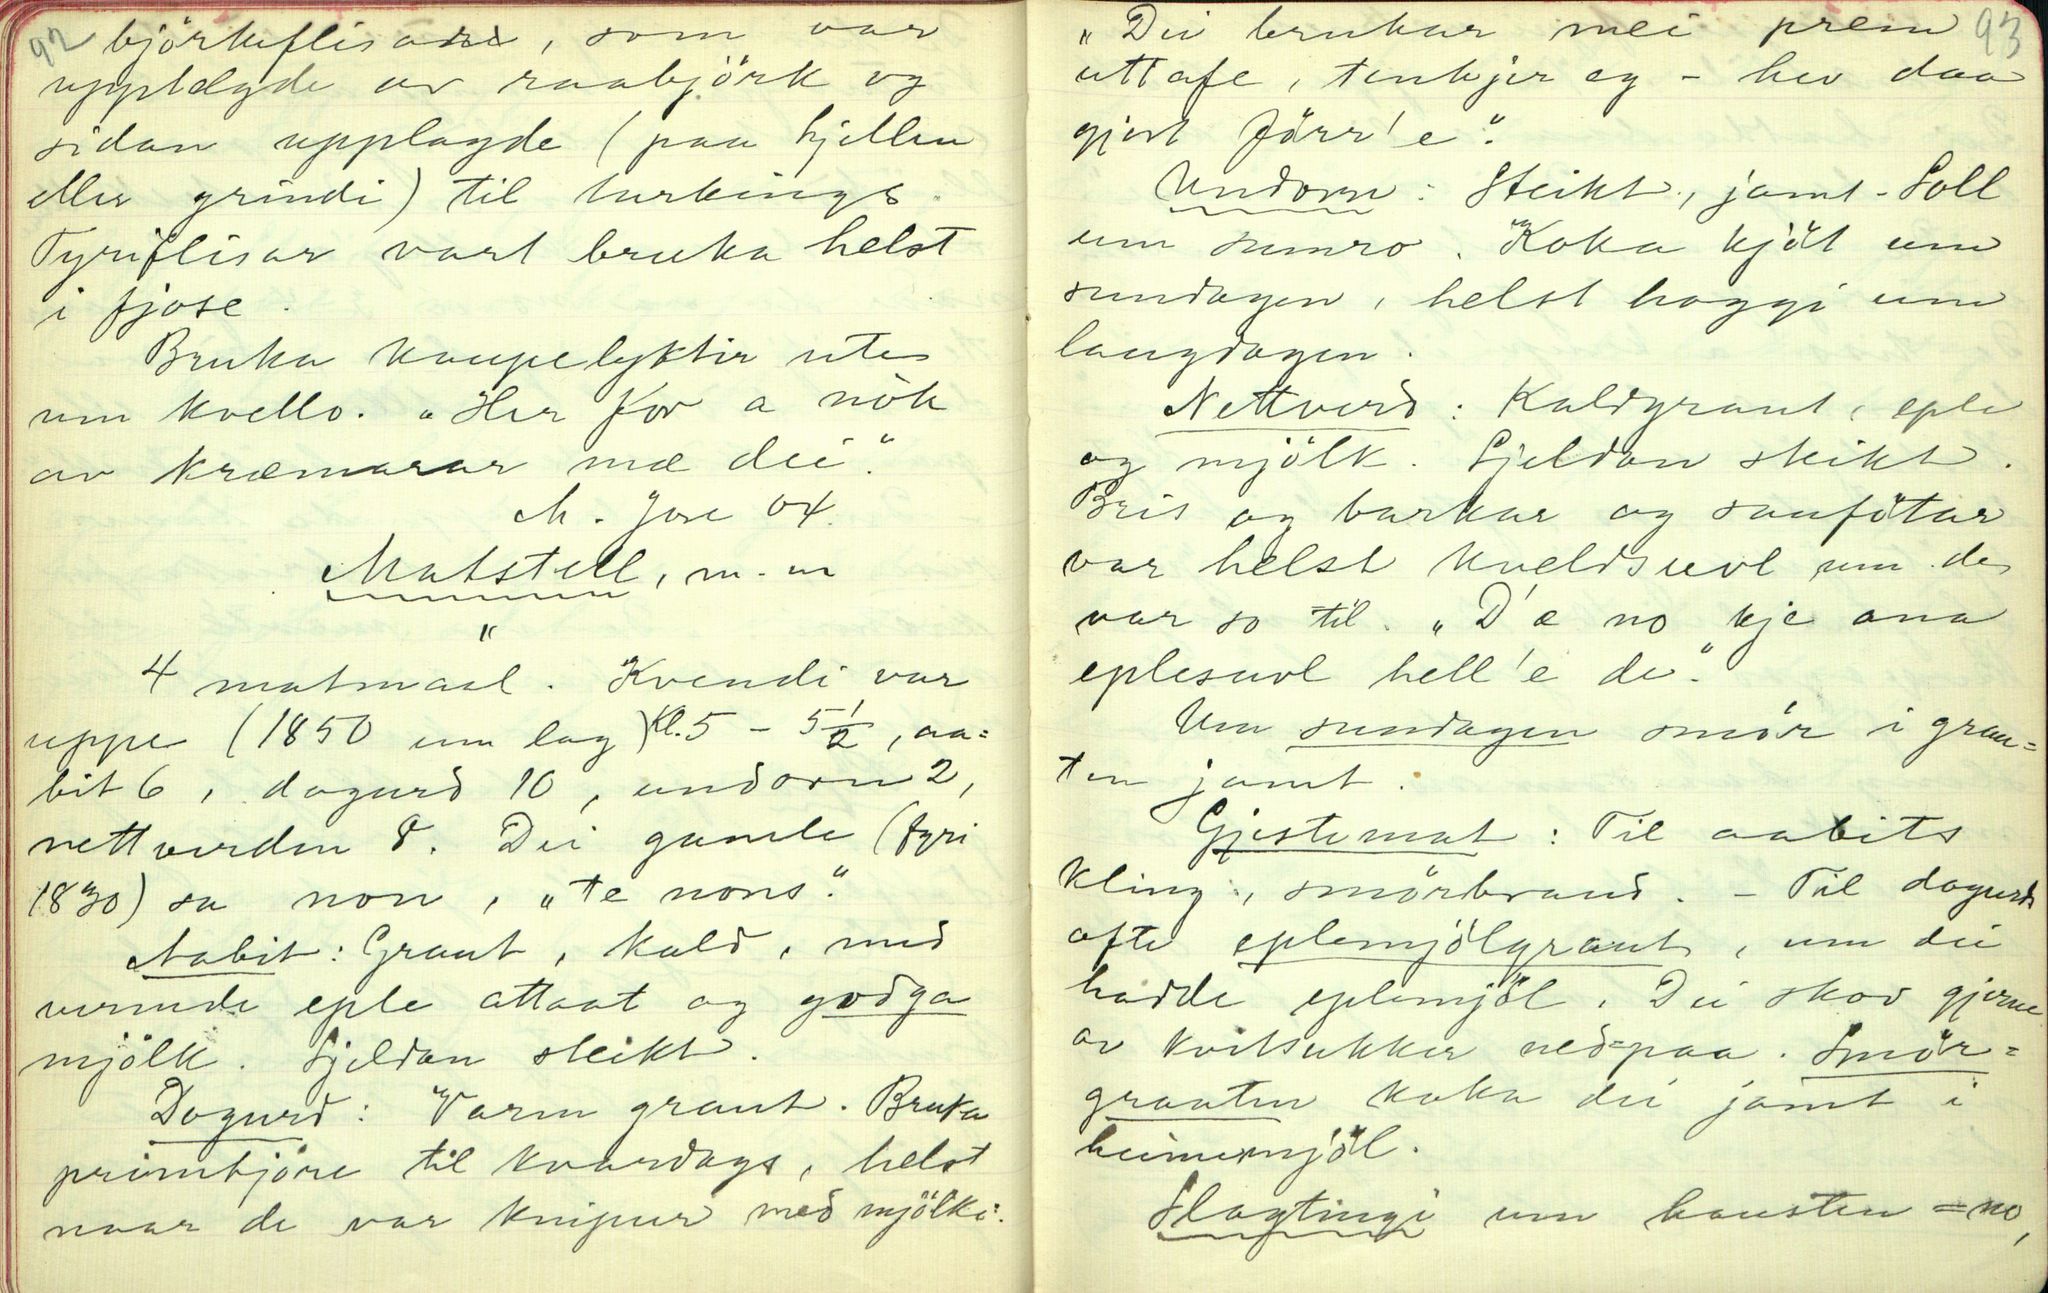 92
björkeflisane, som var
upptelgde av raabjörk og
sidan upplagde (paa hjellen
eller grindi) til turkings.
Tyriflisar vart bruka helst
i fjose.
Bruka kaupelyktir ute
um kvello. "Her for a nòk
av kræmarar mæ dei."
M. Jore 04.
Matstell, m. m
"
4 matmaal. Kvendi var
uppe (1850 um lag) Kl. 5 - 5 1/2, aa=
bit 6, dogurd 10, undorn 2,
nettverden 8. Dei gamle (fyri
1830) sa non, "te nons".
Aabit: Graut, kald, med
vermde eple attaat og godga
mjölk. Sjeldan steikt.
Dogurd: Varm graut. Bruka
primkjöre til kvardags, helst
naar de var knipur med mjölki.
93
"Dei brukar mei prim
uttafe, tenkjer eg - hev daa
gjort förr'e".
Undorn: Steikt, jamt. Soll
um sumro. Koka kjöt um
sundagen, helst hoggi um
laugdagen.
Nettverd: Kaldgraut, eple
og mjölk. Sjeldan steikt.
Bris og barkar og saufötar
var helst kveldsuvl um de
var so til. "D'æ no kje ana
eplesuvl hell'e de".
Um sundagen smör i grau=
ten jamt.
Gjestemat: Til aabits
kling, smörbraud. - Til dogurds
ofte eplemjölgraut, um dei
hadde eplemjöl. Dei skov gjerne
av kvitsukker ned=paa. Smör=
grauten koka dei jamt i
heimemjöl.
Slagtingi um hausten = no,